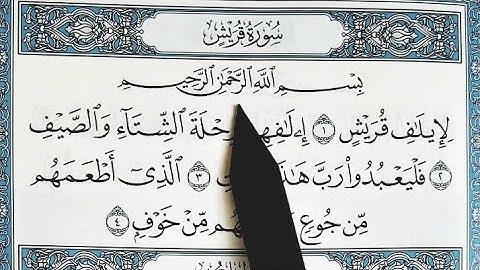 سُورَةُ قُرَيْشٍ
بِسْمِ ٱللَّهِ ٱلرَّحْمَٰنِ ٱلرَّحِيمِ
لِإِيلَٰفِ قُرَيْشٍ ١ إِۦلَٰفِهِمْ رِحْلَةَ ٱلشِّتَآءِ وَٱلصَّيْفِ
٢ فَلْيَعْبُدُوا۟ رَبَّ هَٰذَا ٣ ٱلَّذِىٓ أَطْعَمَهُم
مِّن جُوعٍ مِّنْ خَوْفٍۭ ٤